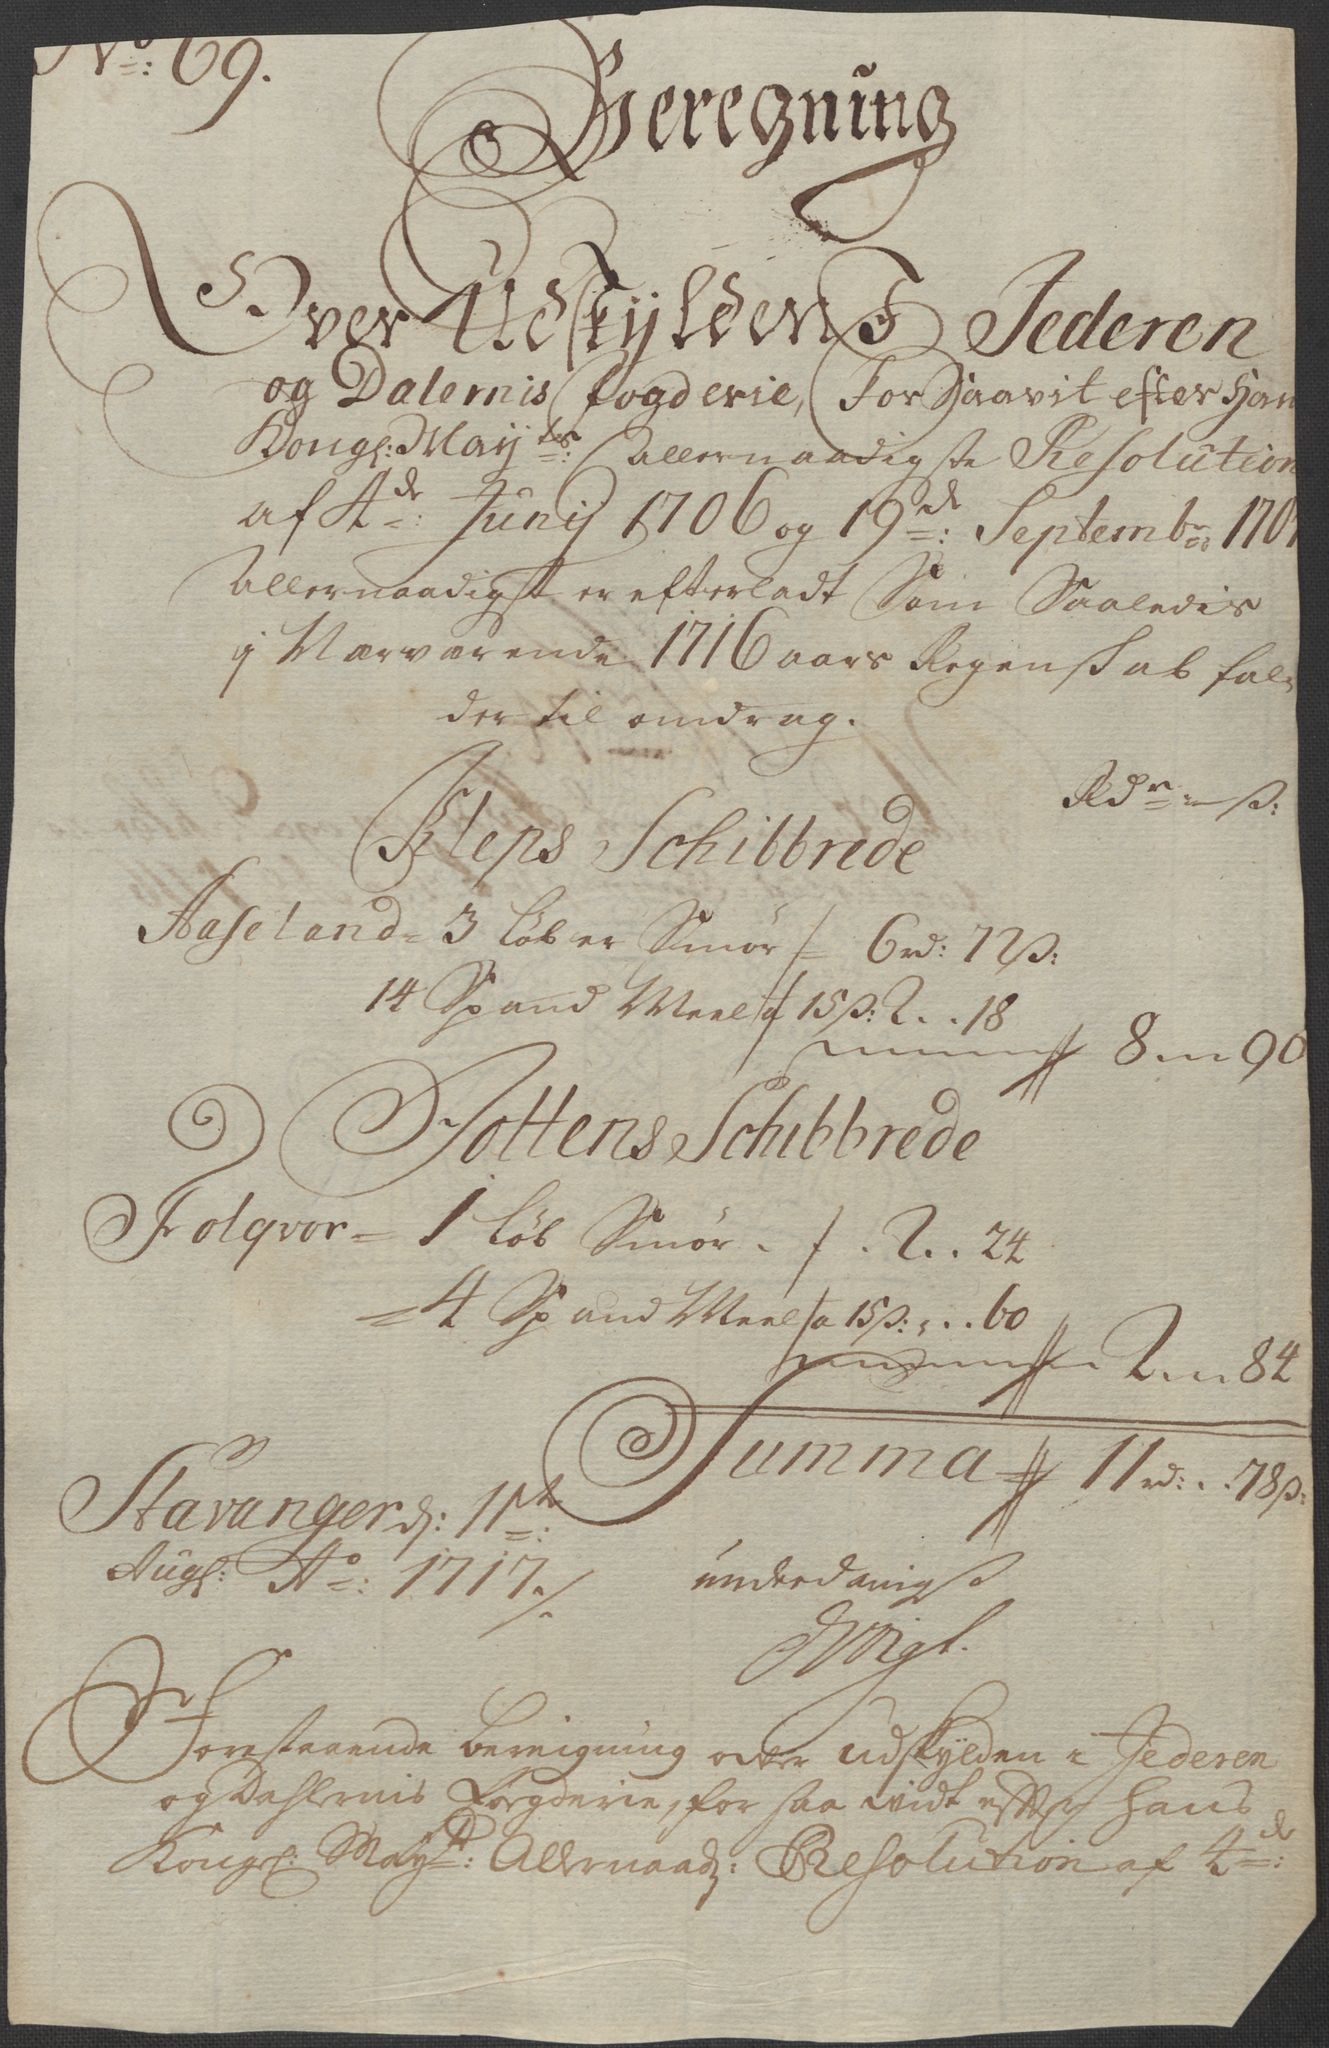 No: 69.
Beregning
Over Udskylden I Jederen
og Dalernis fogderie, For Saavit efter Han
Kongl: Mayts: allernaadigste Resolution
af 4de: Junij 1706 og 19de: Septembr: 170
allernaadigst er efterladt Som Saaledis
i Nærværende 1716 aars Regenskab fal-
der til omdrag.
Rdr - ß:
Kleps Schibbrede
Aaseland = 3 Løber Smør / 6 rd: 72 ß:
14 Spand Meel a 15 ß: 2 . . 18
8 - 90
Jottens Schibbrede
Folqvor = 1 Løb Smør . / . 2 . . 24
= 4 Spand Meel a 15 ß: . . . 60
2 - 84
Summa 11 rd: . . 78 ß:
Stavanger d: 11te:
Augl: Ao: 1717 ./.
underdanigst
Forestaaende bereigning over udskylden i Jederen
og Dahlernis Fogderie, for saa vidt efter hans
Kongl: Mayts: Allernaad: Resolution af 4de: